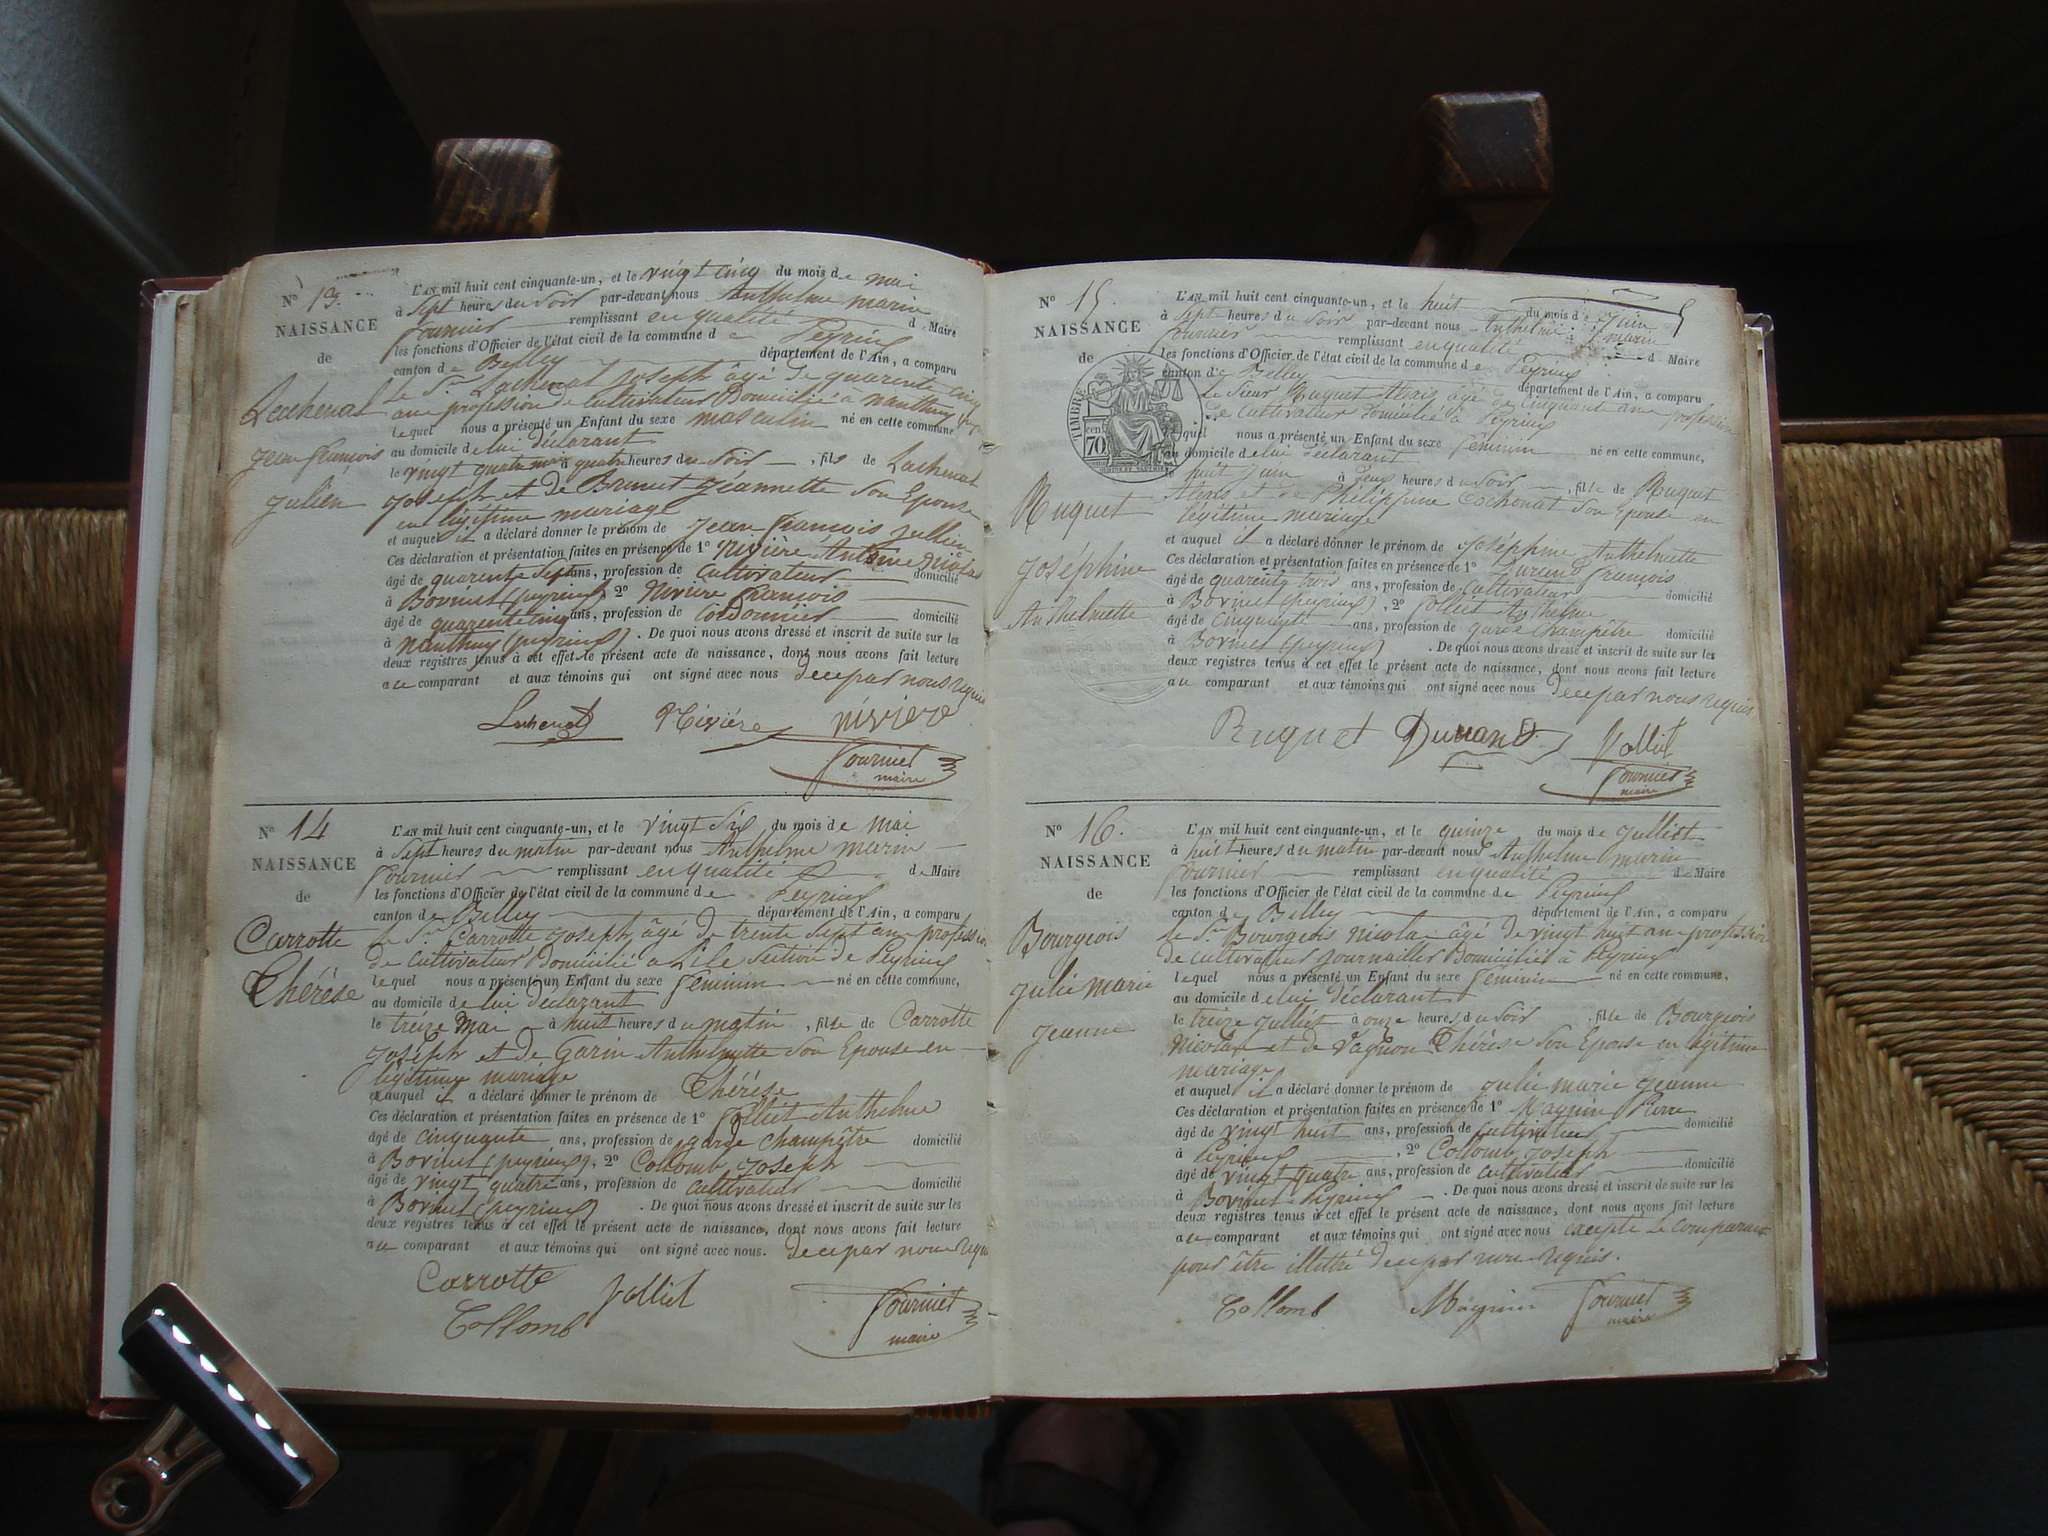 N° 13.
NAISSANCE
de
Lachenal
Jean françois
Julien
L'AN mil huit cent cinquante-un, et le vingt cinq du mois de mai
à Sept heures du Soir par-devant nous Anthelme marin
fournier remplissant en qualité d Maire
les fonctions d'Officier de l'état civil de la commune d Peyrieu
canton de Belley département de l'Ain, a comparu
le Sr Lachenal Joseph âgé de quarente cinq
ans profession de Cultivateur Domicilié à nanthuy
lequel nous a présenté un Enfant du sexe masculin né en cette commune
au domicile de lui déclarant
le vingt quatre mai à quatre heures du Soir, fils de Lachenal
Joseph et de Brunet Jeannette Son Epouse
en légitime mariage
et auquel il a déclaré donner le prénom de Jean françois Jullien
Ces déclaration et présentation faites en présence de 1° Rivière Antoine Nicolas
âgé de quarente Sept ans, profession de Cultivateur domicilié
à Bovinet (peyrieu) 2° Rivière françois
âgé de quarente cinq ans, profession de Cordonnier domicilié
à Nanthuy (peyrieu). De quoi nous avons dressé et inscrit de suite sur les
deux registres tenus à cet effet le présent acte de naissance, dont nous avons fait lecture
au comparant et aux témoins qui ont signé avec nous de ce par nous requis
Lachenal Rivière riviere
fournier
maire
N° 14
NAISSANCE
de
Carrotte
Thérèse
L'AN mil huit cent cinquante-un, et le vingt Six du mois de mai
à Sept heures du matin par-devant nous Anthelme marin
fournier remplissant en qualité de Maire
les fonctions d'Officier de l'état civil de la commune de Peyrieu
canton de Belley département de l'Ain, a comparu
le Sr Carrotte Joseph âgé de trente Sept ans profession
de Cultivateur Domicilié à Lile Section de Peyrieu
lequel nous a présenté un Enfant du sexe féminin né en cette commune,
au domicile de lui déclarant
le treize Mai à huit heures du matin, fille de Carrotte
Joseph et de Garin Anthelmette Son Epouse en
légitime mariage
et auquel il a déclaré donner le prénom de Thérèse
Ces déclaration et présentation faites en présence de 1° Jolliet Anthelme
âgé de cinquante ans, profession de garde champêtre domicilié
à Bovinet (peyrieu), 2° Collomb Joseph
âgé de vingt quatre ans, profession de cultivateur domicilié
à Bovinet (peyrieu). De quoi nous avons dressé et inscrit de suite sur les
deux registres tenus à cet effet le présent acte de naissance, dont nous avons fait lecture
au comparant et aux témoins qui ont signé avec nous. de ce par nous requis
Carrotte Jolliet fournier
Collomb maire
N° 15.
NAISSANCE
de
TIMBRE
70
Ruguet
Joséphine
Anthelmette
L'AN mil huit cent cinquante-un, et le huit du mois de Juin
à Sept heures du Soir par-devant nous Anthelme marin
fournier remplissant en qualité d Maire
les fonctions d'Officier de l'état civil de la commune de Peyrieu
canton de Belley département de l'Ain, a comparu
le Sieur Ruguet Alexis âgé de cinquante ans profession
de Cultivateur Domicilié à Peyrieu
lequel nous a présenté un Enfant du sexe féminin né en cette commune,
au domicile de lui déclarant
le huit Juin à Deux heures du Soir, fille de Ruguet
Alexis et de Philippine Cochonat Son Epouse en
légitime mariage
et auquel il a déclaré donner le prénom de Joséphine Anthelmette
Ces déclaration et présentation faites en présence de 1° Durand françois
âgé de quarente trois ans, profession de Cultivateur domicilié
à Bovinet (peyrieu), 2° Jolliet Anthelme
âgé de cinquante ans, profession de garde champêtre domicilié
à Bovinet (peyrieu). De quoi nous avons dressé et inscrit de suite sur les
deux registres tenus à cet effet le présent acte de naissance, dont nous avons fait lecture
au comparant et aux témoins qui ont signé avec nous de ce par nous requis
Ruguet Durand Jolliet
fournier
maire
N° 16.
NAISSANCE
de
Bourgeois
Julie marie
Jeanne
L'AN mil huit cent cinquante-un, et le quinze du mois de Julliet
à huit heures du matin par-devant nous Anthelme marin
fournier remplissant en qualité d Maire
les fonctions d'Officier de l'état civil de la commune de Peyrieu
canton de Belley département de l'Ain, a comparu
le Sr Bourgeois nicolas âgé de vingt huit ans profession
de cultivateur Journailler Domicilié à Peyrieu
lequel nous a présenté un Enfant du sexe féminin né en cette commune,
au domicile de lui déclarant
le treize Julliet à onze heures du Soir, fille de Bourgeois
Nicolas et de Vagnon Thérèse Son Epouse en légitime
mariage
et auquel il a déclaré donner le prénom de Julie marie Jeanne
Ces déclaration et présentation faites en présence de 1° Magnin Pierre
âgé de vingt huit ans, profession de Cultivateur domicilié
à Peyrieu, 2° Collomb Joseph
âgé de vingt quatre ans, profession de cultivateur domicilié
à Bovinet Peyrieu. De quoi nous avons dressé et inscrit de suite sur les
deux registres tenus à cet effet le présent acte de naissance, dont nous avons fait lecture
au comparant et aux témoins qui ont signé avec nous excepté le comparant
pour être illettré de ce par nous requis.
Collomb Magnin fournier
maire